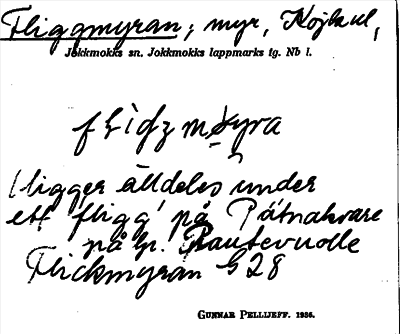 Fliggmyran; myr, Nojbaul,
Jokkmokks sn. Jokkmokks lappmarks tg. Nb l.
flidzmyra
ligger alldeles under
ett 'fligg' på Påtnakvare
på gr. Rautevuolle
Flickmyran G 28
GUNNAR PELLIJEFF. 1936.